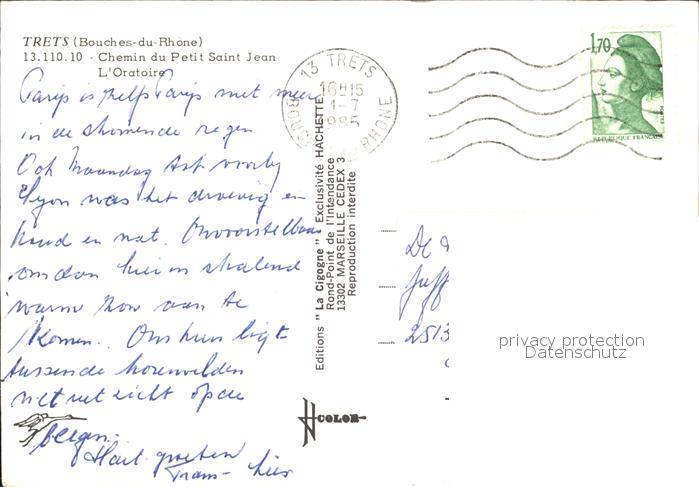 TRETS (Bouches-du-Rhône)
13.110.10 - Chemin du Petit Saint Jean
L'Oratoire
Parijs is zelfs Parijs niet meer
in de stromende regen
Ook Maandag tot voorbij
Lyon was het droevig en
koud en nat. Onvoorstelbaar
om dan hier in stralend
warme zon aan te
komen. Ons huis ligt
tussen de korenvelden
met uitzicht op de
bergen.
Hart. groeten
Fram- Lies
13 TRETS
16H15
1-7
1985
BOUCHES DU RHONE
1,70
REPUBLIQUE FRANCAISE
Editions " La Cigogne " Exclusivité HACHETTE
Rond-Point de l'Intendance
13302 MARSEILLE CEDEX 3
Reproduction interdite
COLOR
De
Juff
2513
privacy protection
Datenschutz